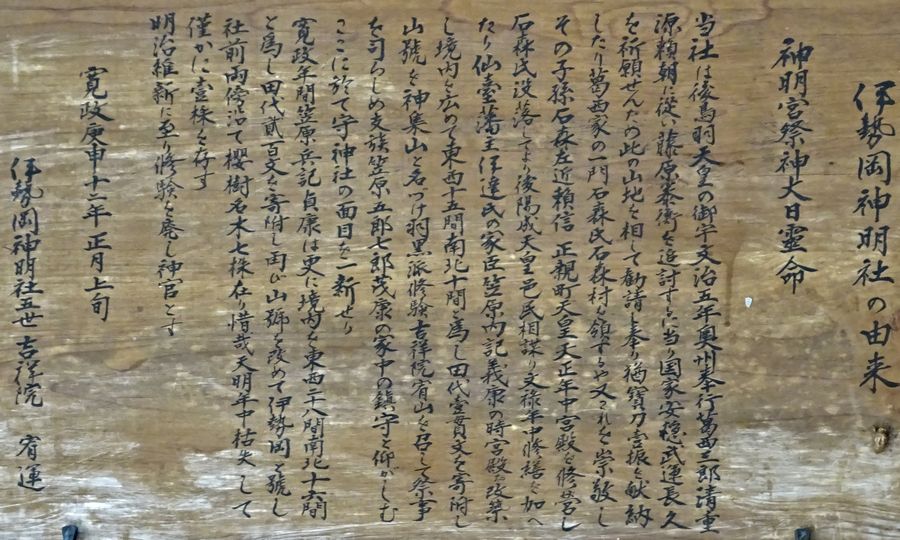 伊勢岡神明社の由来
神明宮祭神大日靈命
当社は後鳥羽天皇の御宇文治五年奥州奉行葛西三郎清重
源頼朝に従い藤原泰衡を追討するに当り国家安穏武運長久
を祈願せんため此の山地を相して勧請し奉り猶寳刀壹振を献納
したり葛西家の一門石森氏石森村を領するや又これを崇敬し
その子孫石森左近頼信 正親町天皇天正年中宮殿を修営し
石森氏没落してより後陽成天皇邑民相謀り文禄年中修繕を加へ
たり仙臺藩主伊達氏の家臣笠原内記義康の時宮殿を改築
し境内を広めて東西十五間南北十間と為し田代壹貫文を寄附し
山號を神集山と名つけ羽黒派修験吉祥院宥山を召して祭事
を司らしめ支族笠原五郎七郎茂康の家中の鎮守と仰がしむ
ここに於て守神社の面目を一新せり
寛政年間笠原兵記貞康は更に境内を東西二十八間南北十六間
と為し田代貳百文を寄附し因い山號を改めて伊勢岡と號し
社前両傍に沿て櫻樹老木七株在り惜哉天明年中枯失して
僅かに壹株を存す
明治維新に至り修験を廃し神官とす
寛政庚申十二年正月上旬
伊勢岡神明社五世 吉祥院 宥運